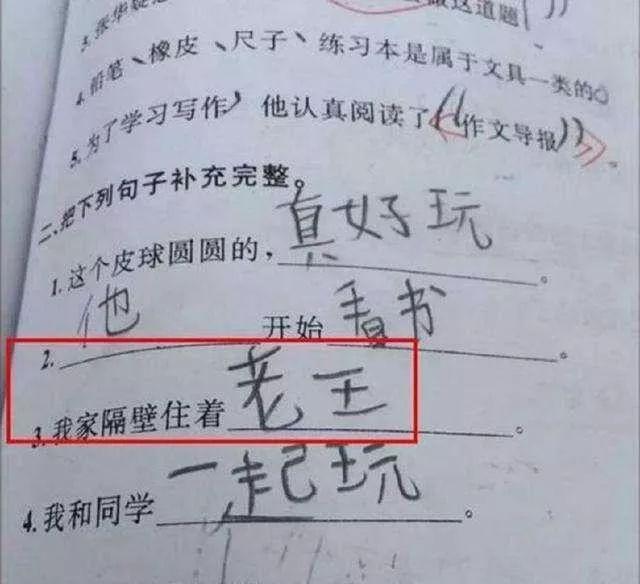 3.张华疑惑 做这道题( ))
4.铅笔、橡皮、尺子、练习本是属于文具一类的。
5.为了学习写作,他认真阅读了《作文导报》。
二、把下列句子补充完整。
1.这个皮球圆圆的,真好玩。
2.他开始看书。
3.我家隔壁住着老王。
4.我和同学一起玩。